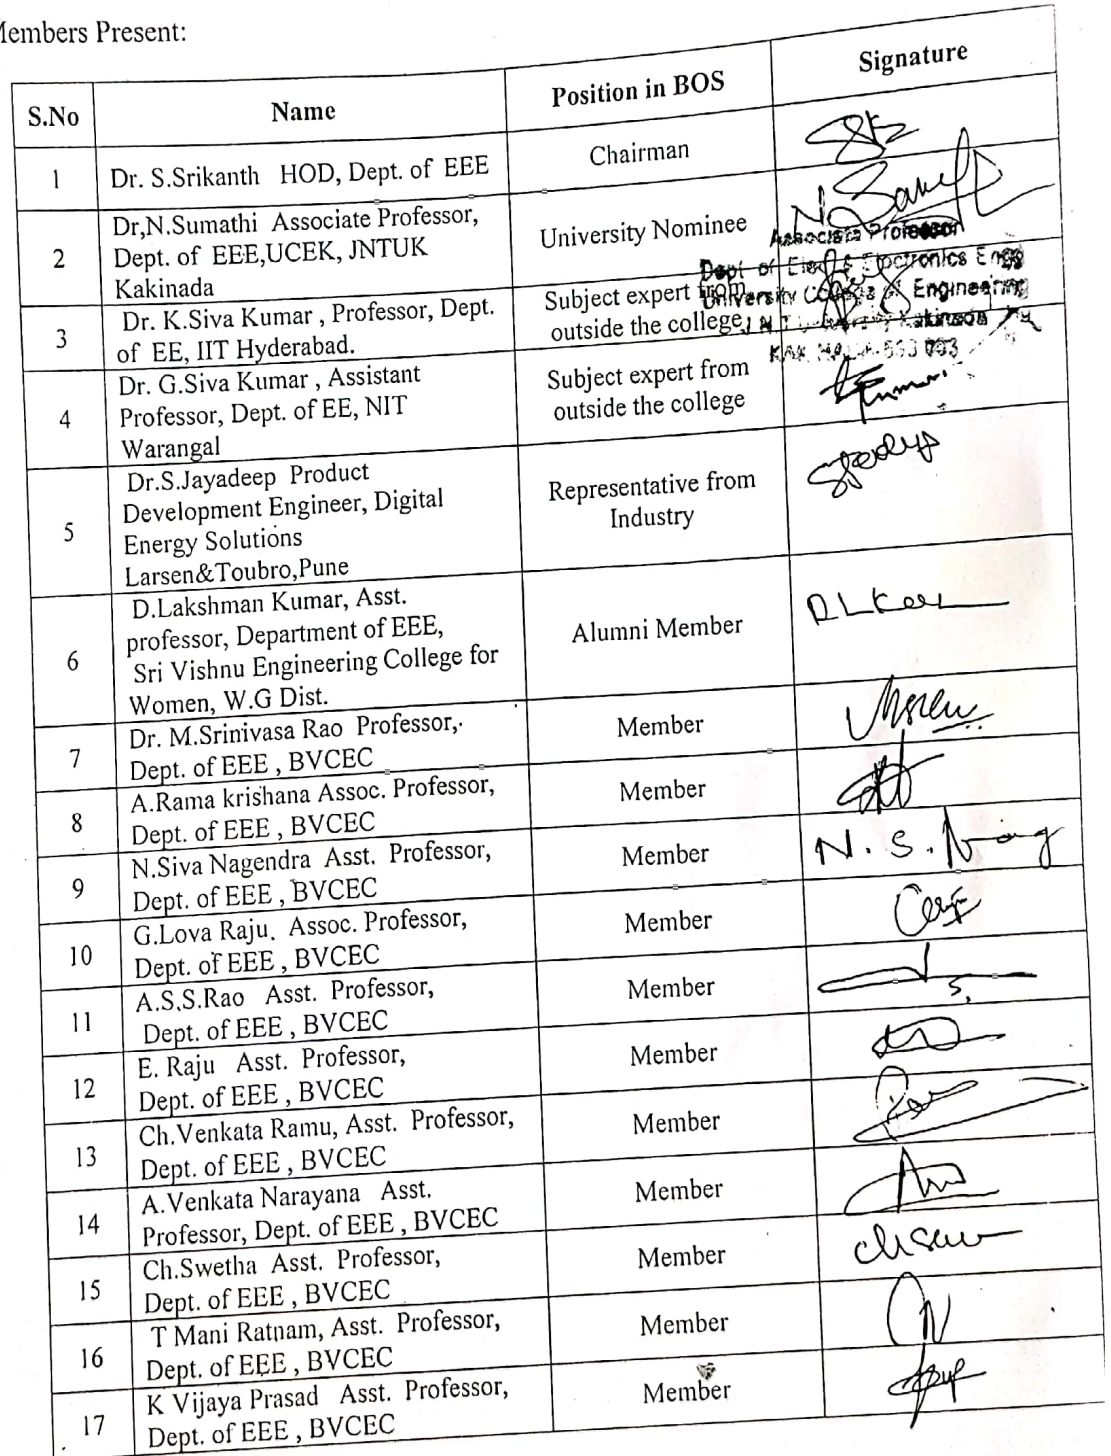 Members Present:
S.No Name Position in BOS Signature
1 Dr. S.Srikanth HOD, Dept. of EEE Chairman
2 Dr,N.Sumathi Associate Professor,
Dept. of EEE,UCEK, JNTUK
Kakinada
University Nominee
Associate Professor
Dept of Elec & Electronics Engg
University College of Engineering
3 Dr. K.Siva Kumar , Professor, Dept.
of EE, IIT Hyderabad.
Subject expert from
outside the college
4 Dr. G.Siva Kumar , Assistant
Professor, Dept. of EE, NIT
Warangal
Subject expert from
outside the college
5 Dr.S.Jayadeep Product
Development Engineer, Digital
Energy Solutions
Larsen&Toubro,Pune
Representative from
Industry
6 D.Lakshman Kumar, Asst.
professor, Department of EEE,
Sri Vishnu Engineering College for
Women, W.G Dist.
Alumni Member
7 Dr. M.Srinivasa Rao Professor,
Dept. of EEE , BVCEC
Member
8 A.Rama krishana Assoc. Professor,
Dept. of EEE , BVCEC
Member
9 N.Siva Nagendra Asst. Professor,
Dept. of EEE , BVCEC
Member
N. S. Nag
10 G.Lova Raju. Assoc. Professor,
Dept. of EEE , BVCEC
Member
11 A.S.S.Rao Asst. Professor,
Dept. of EEE , BVCEC
Member
12 E. Raju Asst. Professor,
Dept. of EEE , BVCEC
Member
13 Ch.Venkata Ramu, Asst. Professor,
Dept. of EEE , BVCEC
Member
14 A.Venkata Narayana Asst.
Professor, Dept. of EEE , BVCEC
Member
15 Ch.Swetha Asst. Professor,
Dept. of EEE , BVCEC
Member
16 T Mani Ratnam, Asst. Professor,
Dept. of EEE , BVCEC
Member
17 K Vijaya Prasad Asst. Professor,
Dept. of EEE , BVCEC
Member